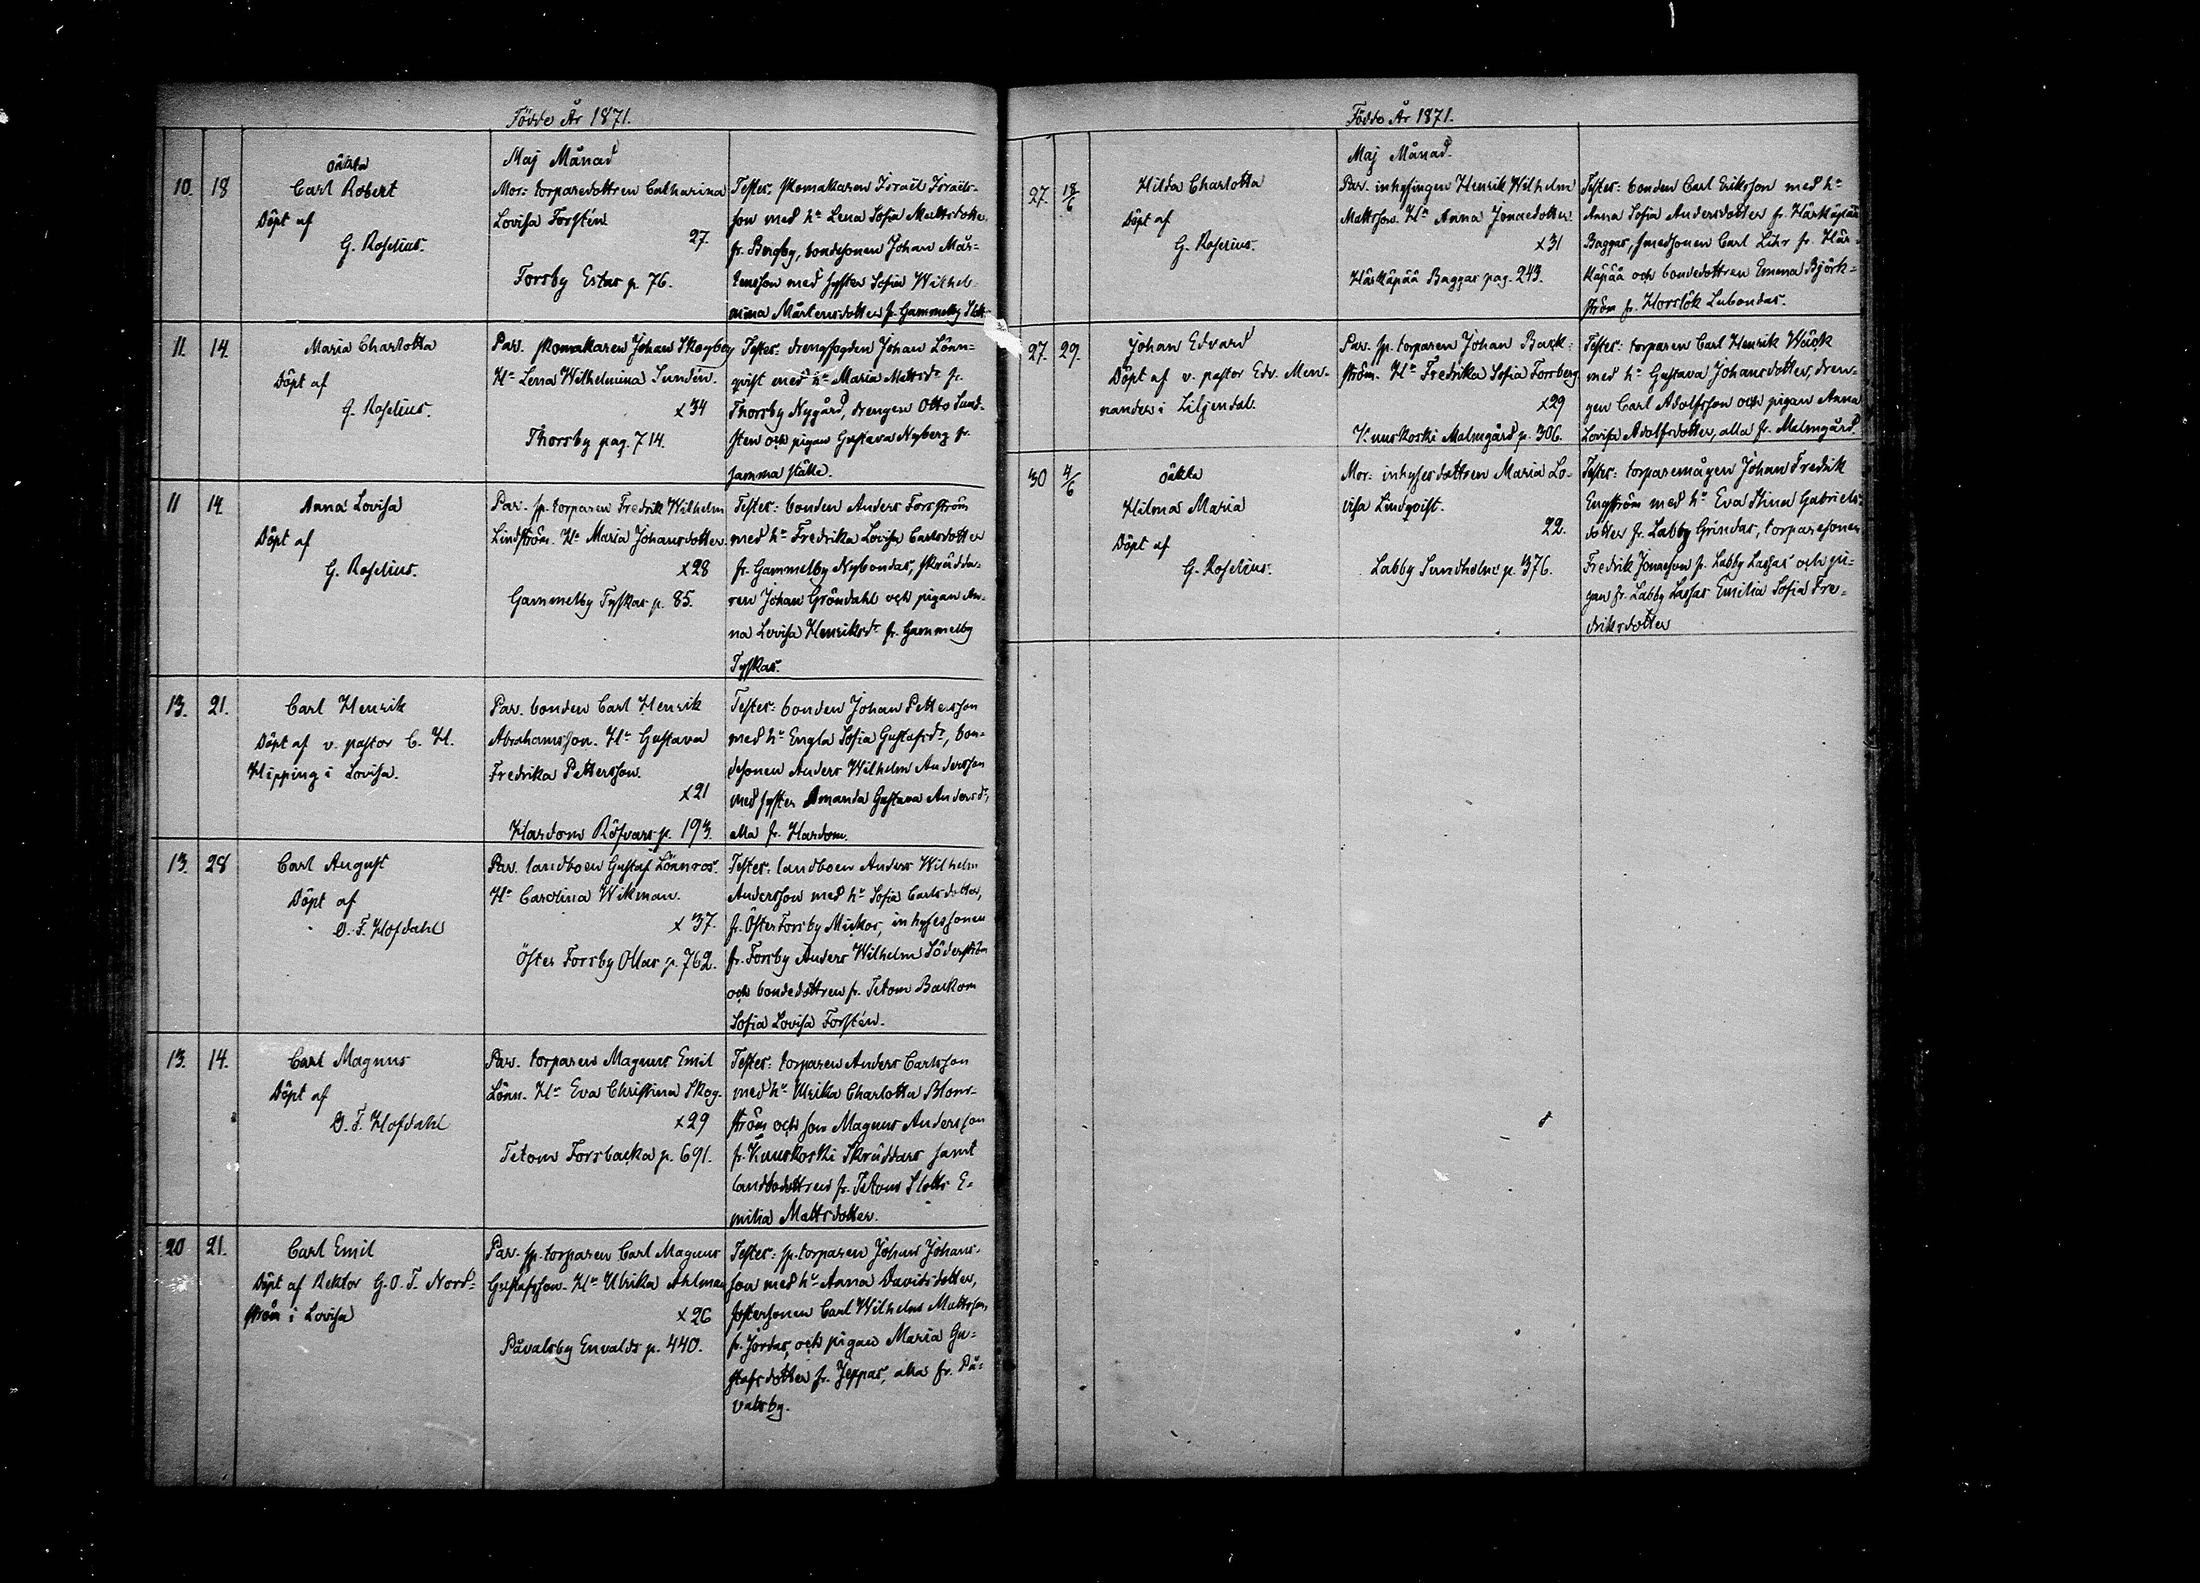 Födde År 1871.
Maj Månad
10. 18 oäkta
Carl Robert
Döpt af
G. Roselius.
Mor: torparedottren Catharina
Lovisa Forstén
27.
Forsby Estas p. 76.
Testes: skomakaren Israël Israëls-
son med hu Lena Sofia Mattsdotter
fr. Bergby, bondesonen Johan Mår-
tensson med syster Sofia Wilhel-
mina Mårtensdotter fr. Gammelby
11. 14. Maria Charlotta
Döpt af
G. Roselius.
Par. skomakaren Johan Skogberg
Hu Lena Wilhelmina Sundén.
x34
Thorsby pag. 714.
Testes: drengfogden Johan Lönn-
qvist med hu Maria Mattsdr fr.
Thorsby Nygård, drengen Otto Sund-
sten och pigan Gustava Nyberg fr.
samma ställe.
11 14. Anna Lovisa
Döpt af
G. Roselius.
Par. sp. torparen Fredrik Wilhelm
Lindström. Hu Maria Johansdotter.
x28
Gammelby Tyskas p. 85.
Testes: bonden Anders Forsström
med hu Fredrika Lovisa Carlsdotter
fr. Gammelby Nybondas, skrädda-
ren Johan Gröndahl och pigan An-
na Lovisa Henriksdr fr. Gammelby
Tyskas.
13. 21. Carl Henrik
Döpt af v. pastor C. H.
Hipping i Lovisa.
Par. bonden Carl Henrik
Abrahamsson. Hu Gustava
Fredrika Pettersson.
x21
Hardom Röfvars p. 193.
Testes: bonden Johan Pettersson
med hu Engla Sofia Gustafsdr, bon-
desonen Anders Wilhelm Andersson
med syster Amanda Gustava Andersdr,
alla fr. Hardom.
13. 28 Carl August
Döpt af
D. F. Hofdahl
Par. landboen Gustaf Lönnros.
Hu Carolina Wikman.
x37.
Öster Forsby Ollas p. 762.
Testes: landboen Anders Wilhelm
Andersson med hu Sofia Carlsdotter,
fr. Öster Forsby Mickos, inhysessonen
fr. Forsby Anders Wilhelm Söderström
och bondedottren fr. Tetom Backom
Sofia Lovisa Forstén.
13. 14. Carl Magnus
Döpt af
D. F. Hofdahl
Par. torparen Magnus Emil
Lönn. Hu Eva Christina Skog.
x29
Tetom Forsbacka p. 691.
Testes: torparen Anders Carlsson
med hu Ulrika Charlotta Blom-
ström och son Magnus Andersson
fr. Kuuskoski Skräddars samt
landbodottren fr. Tetom Slotts E-
milia Mattsdotter.
20 21. Carl Emil
Döpt af Rektor G. O. F. Nord-
ström i Lovisa
Par. sp. torparen Carl Magnus
Gustafsson. Hu Ulrika Ahlman
x26
Påvalsby Envalds p. 440.
Testes: sp. torparen Johans Johans-
son med hu Anna Davidsdotter,
fostersonen Carl Wilhelm Mattsson,
fr. Jordas, och pigan Maria Gu-
stafsdotter fr. Jeppas, alla fr. På-
valsby.
Födde År 1871.
Maj Månad.
27. 18/6 Hilda Charlotta
Döpt af
G. Roselius.
Par. inhysingen Henrik Wilhelm
Mattsson. Hu Anna Jonaedotter
x31
Härkäpää Baggas pag. 243.
Testes: bonden Carl Eriksson med hu
Anna Sofia Andersdotter fr. Härkäpää
Baggas, smedsonen Carl Lihr fr. Här-
käpää och bondedottren Emma Björk-
ström fr. Horslök Lubondas.
27. 29. Johan Edvard
Döpt af v. pastor Edv. Men-
nander i Liljendal.
Par. sp. torparen Johan Back-
ström. Hu Fredrika Sofia Forsberg
x29
Kuuskoski Malmgård p. 306.
Testes: torparen Carl Henrik Wäck
med hu Gustava Johansdotter, dren-
gen Carl Adolfsson och pigan Anna
Lovisa Adolfsdotter, alla fr. Malmgård.
30 4/6 oäkta
Hilma Maria
Döpt af
G. Roselius.
Mor: inhysesdottren Maria Lo-
visa Lindqvist.
22.
Labby Sundholm p. 376.
Testes: torparemågen Johan Fredrik
Engström med hu Eva Stina Gabriels-
dotter fr. Labby Grindas, torparesonen
Fredrik Jonaeson fr. Labby Lassas och pi-
gan fr. Labby Lassas Emilia Sofia Fre-
driksdotter